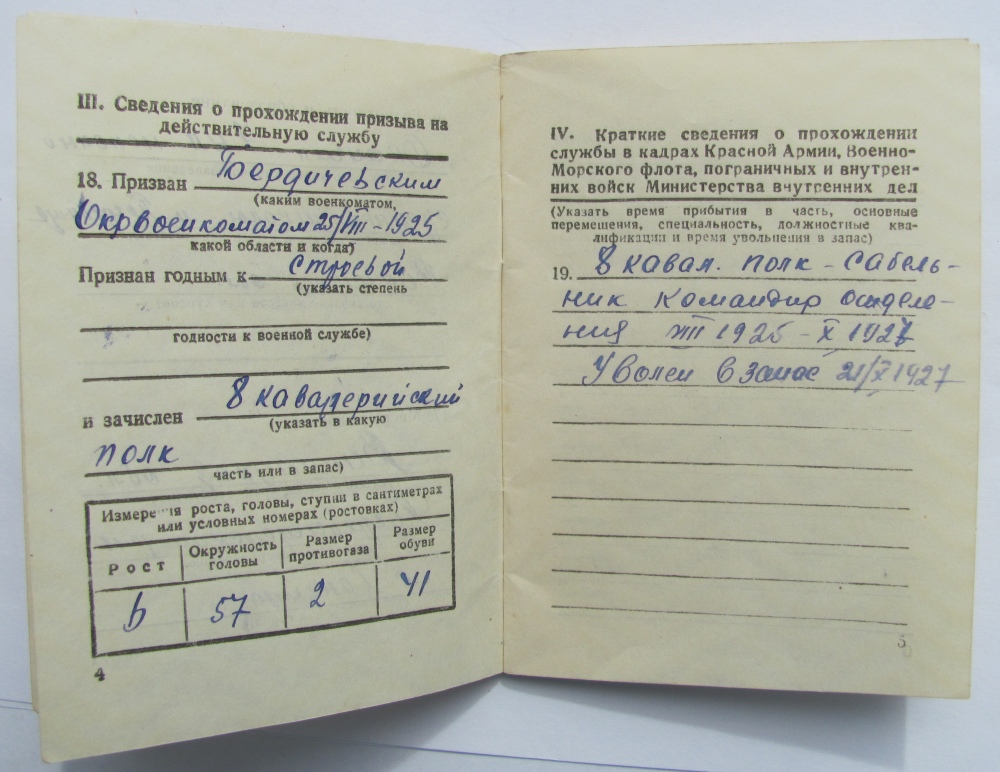 III. Сведения о прохождении призыва на
действительную службу
18. Призван Бердичевским
(каким военкоматом,
Окрвоенкоматом 25/VIII-1925
какой области и когда)
Признан годным к строевой
(указать степень
годности к военной службе)
и зачислен 8 кавалерийский
(указать в какую
полк
часть или в запас)
Измерения роста, головы, ступни в сантиметрах
или условных номерах (ростовках)
Рост Окружность головы Размер противогаза Размер обуви
6 57 2 41
4
IV. Краткие сведения о прохождении
службы в кадрах Красной Армии, Военно-
Морского флота, пограничных и внутрен-
них войск Министерства внутренних дел
(Указать время прибытия в часть, основные
перемещения, специальность, должностные ква-
лификации и время увольнения в запас)
19. 8 кавал. полк - сабель-
ник командир отделе-
ния VIII 1925 - X 1927
Уволен в запас 21/X 1927
5